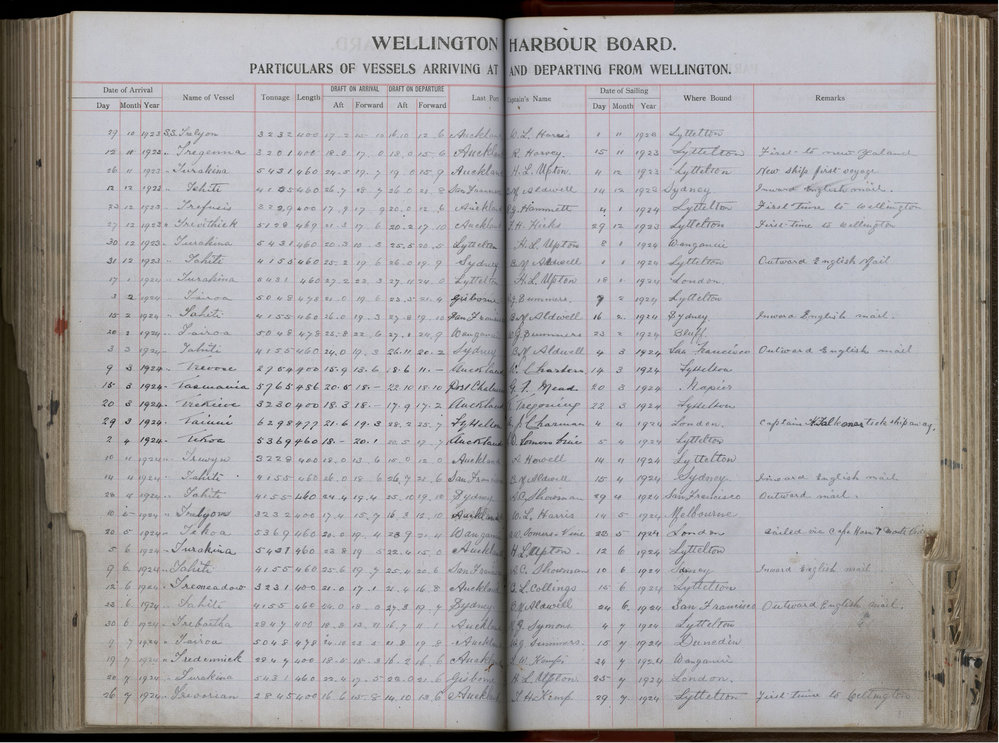 WELLINGTON HARBOUR BOARD.
PARTICULARS OF VESSELS ARRIVING AT AND DEPARTING FROM WELLINGTON.
Date of Arrival Name of Vessel Tonnage Length DRAFT ON ARRIVAL DRAFT ON DEPARTURE Last Port Captain's Name Date of Sailing Where Bound Remarks
Day Month Year Aft Forward Aft Forward Day Month Year
29 10 1923 S.S. Trelyon 3232 400 17.2 16.10 12.6 Auckland W.L. Harris 1 11 1923 Lyttelton
12 11 1923 " Tregenna 3201 400 18.0 17.0 18.0 15.6 Auckland R. Harvey 15 11 1923 Lyttelton First to New Zealand
26 11 1923 " Turakina 5431 460 24.5 19.7 19.0 15.9 Auckland H.L. Upton 4 12 1923 Lyttelton New ship first voyage
12 12 1923 " Tahiti 4155 460 26.7 18.7 26.0 21.8 San Francisco B.M. Aldwell 14 12 1923 Sydney Inward English mail.
23 12 1923 " Trefusis 3229 400 17.9 17.9 20.0 12.6 Auckland Hammett 4 1 1924 Lyttelton First time to Wellington
27 12 1923 " Trevithick 5128 469 21.3 17.6 20.2 17.10 Auckland F.H. Hicks 29 12 1923 Lyttelton First time to Wellington
30 12 1923 " Turakina 5431 460 20.3 10.3 25.5 20.5 Lyttelton H.L. Upton 8 1 1924 Wanganui
31 12 1923 " Tahiti 4155 460 25.2 19.6 26.0 19.9 Sydney B.M. Aldwell 1 1 1924 Lyttelton Outward English Mail
17 1 1924 " Turakina 5431 460 27.2 23.3 27.11 24.0 Lyttelton H.L. Upton 18 1 1924 London.
3 2 1924 " Tairoa 5048 478 21.0 19.6 23.5 21.4 Gisborne Summers. 7 2 1924 Lyttelton
15 2 1924 " Tahiti 4155 460 26.0 19.3 27.8 19.10 San Francisco B.M. Aldwell 16 2 1924 Sydney. Inward English mail.
20 2 1924 " Tairoa 5048 478 25.8 22.6 27.1 24.9 Wanganui Summers 23 2 1924 Bluff.
3 3 1924 " Tahiti 4155 460 24.0 19.3 26.11 20.2 Sydney B.M. Aldwell 4 3 1924 San Francisco Outward English mail
9 3 1924 " Trevose 2954 400 15.9 13.6 18.6 11.- Auckland Charters 14 3 1924 Lyttelton
15 3 1924 " Tasmania 5765 486 20.5 18.- 22.10 18.10 Port Chalmers G.F. Mead 20 3 1924 Napier
20 3 1924 " Trekieve 3230 400 18.3 18.- 17.9 17.2 Auckland Tregoning 22 3 1924 Lyttelton
29 3 1924 " Tainui 6298 477 21.6 19.3 28.2 25.7 Lyttelton Charman 4 4 1924 London. Captain took ship away.
2 4 1924 " Tekoa 5369 460 18.- 20.1 20.5 17.7 Auckland W. Somers Fine 5 4 1924 Lyttelton
10 4 1924 " Trewyn 3228 400 18.0 13.6 15.0 12.0 Auckland Howell 14 4 1924 Lyttelton
14 4 1924 " Tahiti 4155 460 26.0 18.6 26.7 21.6 San Francisco B.M. Aldwell 15 4 1924 Sydney. Inward English mail
28 4 1924 " Tahiti 4155 460 24.4 19.4 25.10 19.10 Sydney A.C. Showman 29 4 1924 San Francisco Outward mail.
10 5 1924 " Trelyon 3232 400 17.4 15.7 16.3 12.10 Auckland W.L. Harris 14 5 1924 Melbourne
20 5 1924 " Tekoa 5369 460 20.0 19.4 23.9 21.4 Wanganui W. Somers Fine 22 5 1924 London Sailed via Cape Horn & Monte Video
5 6 1924 " Turakina 5431 460 23.8 19.5 22.4 15.0 Auckland H.L. Upton 12 6 1924 Lyttelton
9 6 1924 " Tahiti 4155 460 25.6 19.7 25.4 20.6 San Francisco A.C. Showman 10 6 1924 Sydney Inward English mail
12 6 1924 " Tremeadow 3231 400 21.0 17.1 21.4 16.8 Auckland Collings 15 6 1924 Lyttelton
23 6 1924 " Tahiti 4155 460 24.0 18.0 27.3 19.7 Sydney B.M. Aldwell 24 6 1924 San Francisco Outward English mail.
30 6 1924 " Trebartha 2847 400 18.8 13.4 16.7 11.1 Auckland Symons 4 7 1924 Lyttelton
9 7 1924 " Tairoa 5048 478 24.10 23.5 21.8 19.8 Auckland Summers. 15 7 1924 Dunedin
19 7 1924 " Tredennick 2847 400 18.5 18.3 16.2 16.6 Auckland Kemp 24 7 1924 Wanganui
20 7 1924 " Turakina 5431 460 22.4 17.5 22.0 21.6 Gisborne H.L. Upton 25 7 1924 London.
26 7 1924 " Trevorian 2845 400 16.6 15.8 14.10 13.6 Auckland Kemp 29 7 1924 Lyttelton First time to Wellington